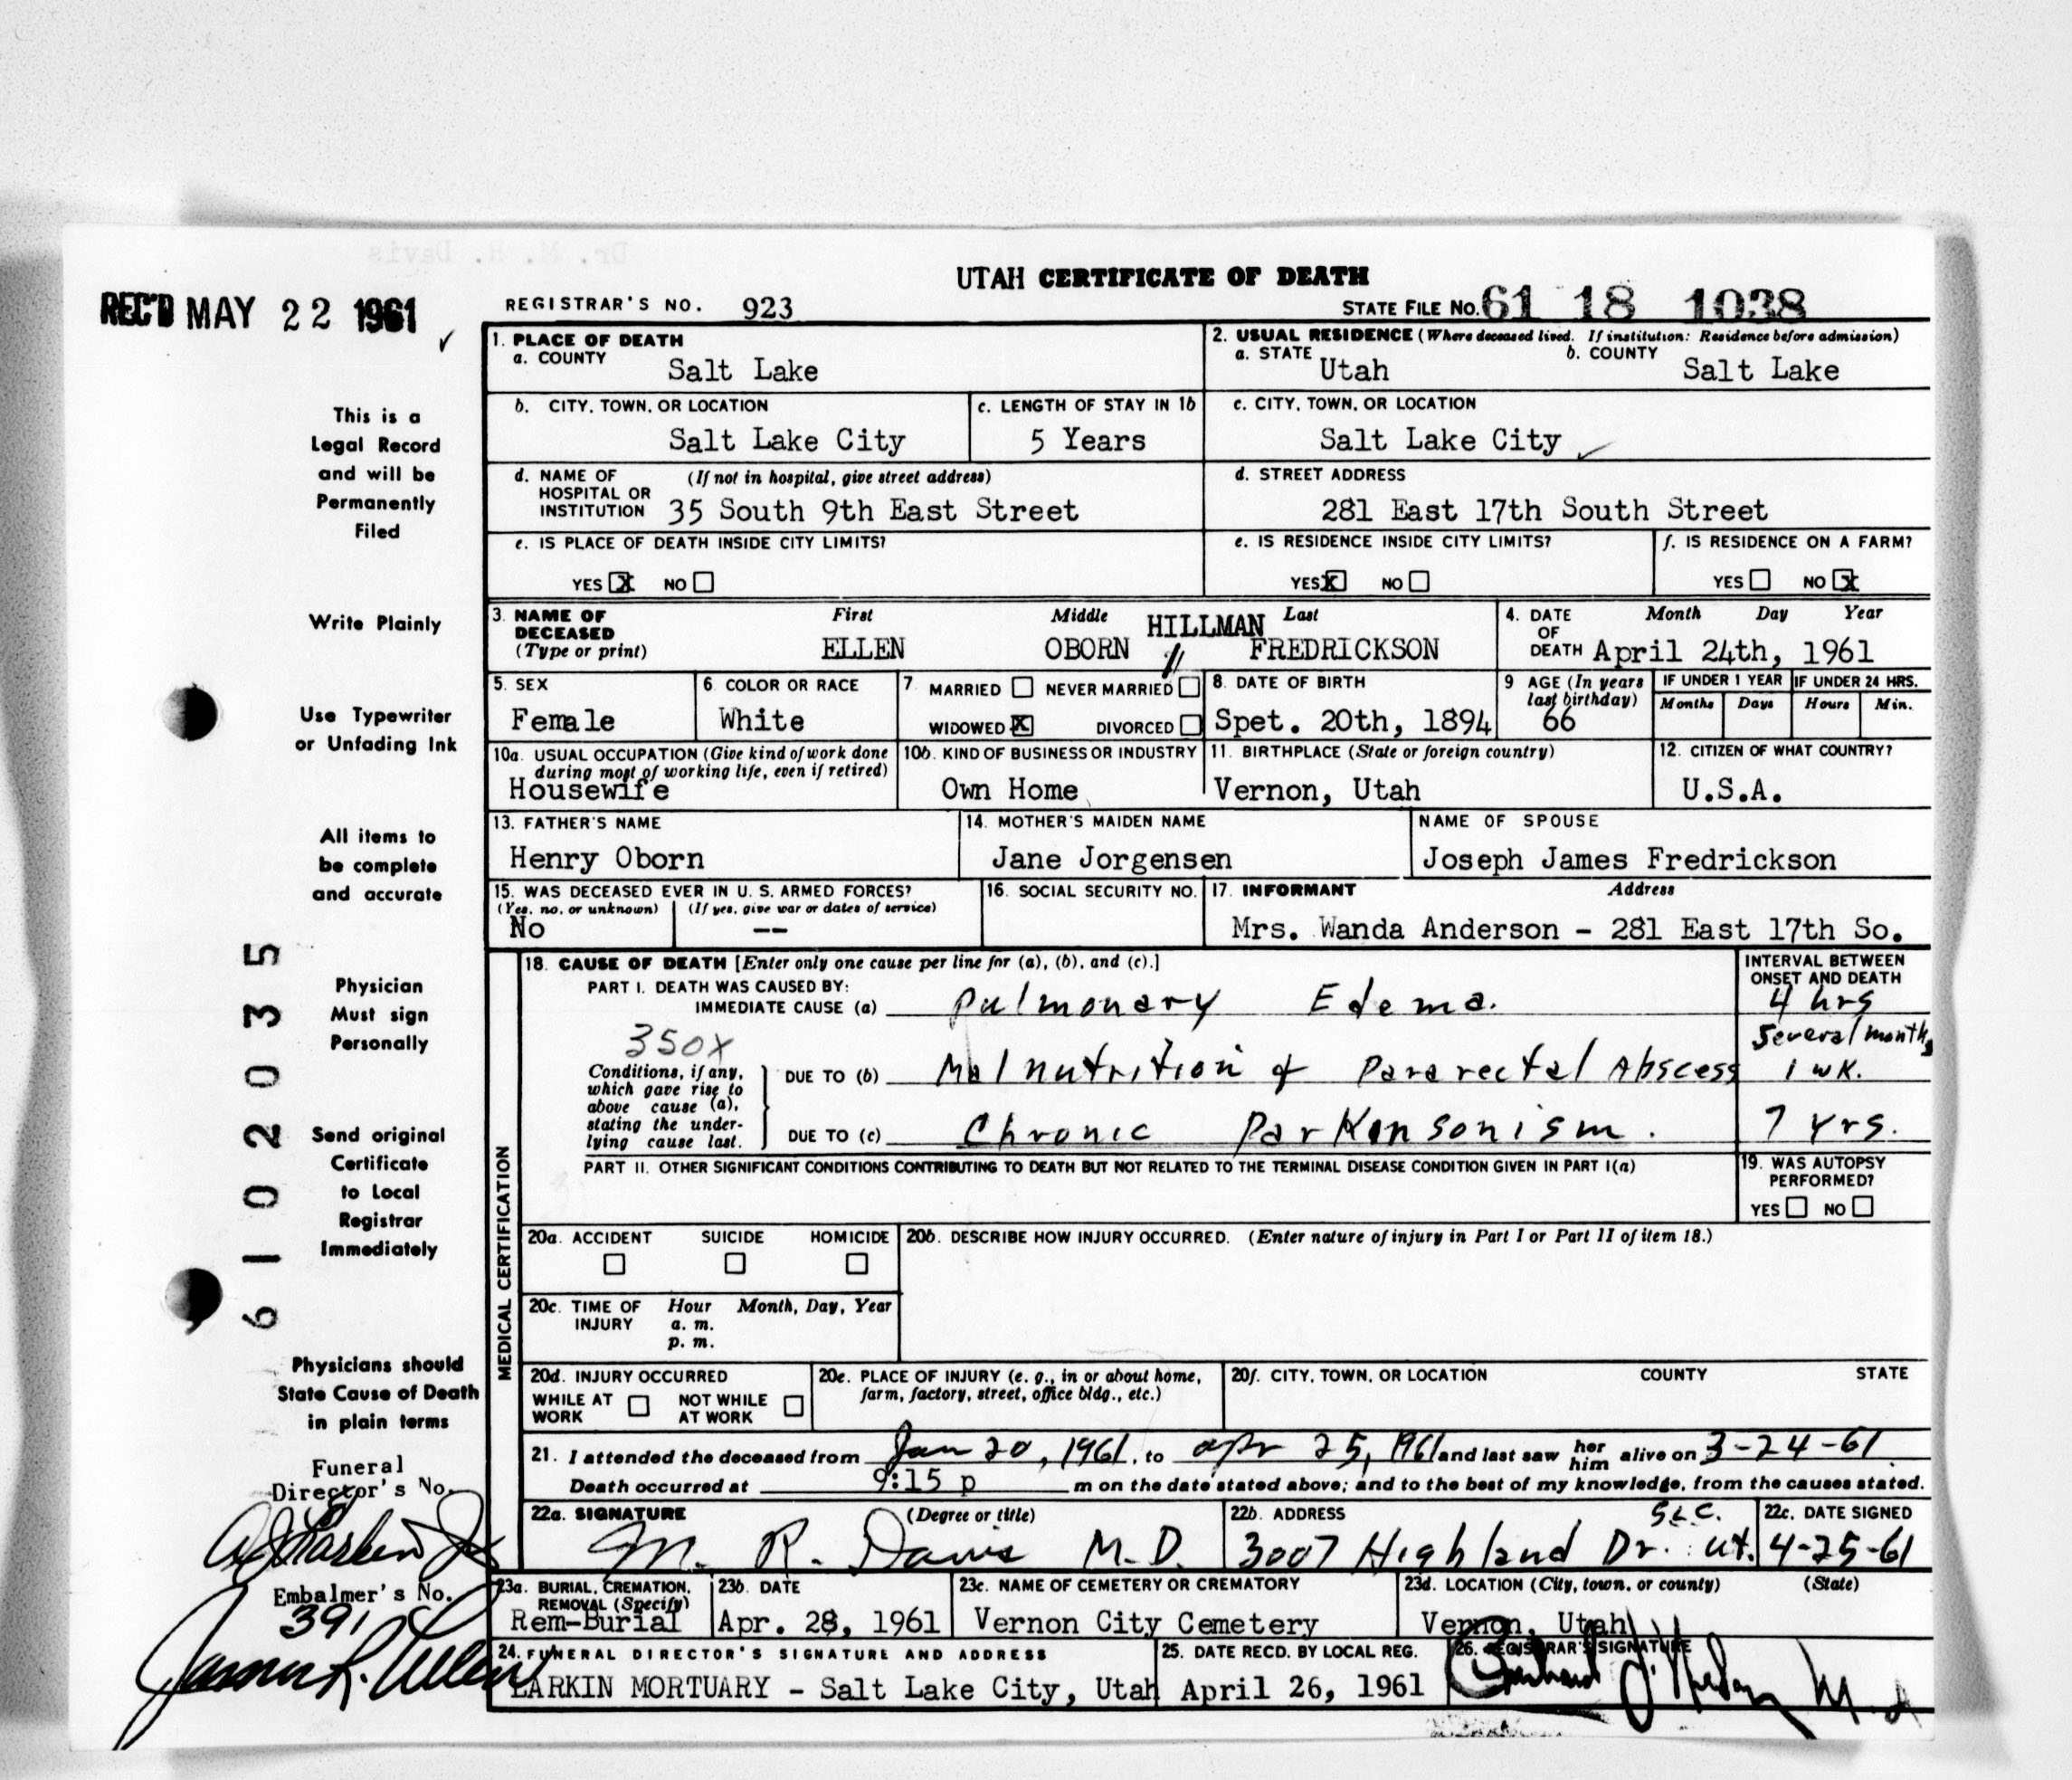 Dr. M. R. Davis
UTAH CERTIFICATE OF DEATH
REC'D MAY 22 1961
REGISTRAR'S NO. 923
STATE FILE NO. 61 18 1038
1. PLACE OF DEATH
a. COUNTY Salt Lake
2. USUAL RESIDENCE (Where deceased lived. If institution: Residence before admission)
a. STATE Utah b. COUNTY Salt Lake
b. CITY, TOWN, OR LOCATION Salt Lake City
c. LENGTH OF STAY IN 1b 5 Years
c. CITY, TOWN, OR LOCATION Salt Lake City
d. NAME OF HOSPITAL OR INSTITUTION (If not in hospital, give street address) 35 South 9th East Street
d. STREET ADDRESS 281 East 17th South Street
e. IS PLACE OF DEATH INSIDE CITY LIMITS?
YES X NO
e. IS RESIDENCE INSIDE CITY LIMITS?
YES X NO
f. IS RESIDENCE ON A FARM?
YES NO X
3. NAME OF DECEASED (Type or print)
First Middle Last
HILLMAN
ELLEN OBORN // FREDRICKSON
4. DATE OF DEATH Month Day Year
April 24th, 1961
5. SEX Female
6. COLOR OR RACE White
7. MARRIED NEVER MARRIED
WIDOWED X DIVORCED
8. DATE OF BIRTH Spet. 20th, 1894
9 AGE (In years last birthday) 66
IF UNDER 1 YEAR Months Days
IF UNDER 24 HRS. Hours Min.
10a. USUAL OCCUPATION (Give kind of work done during most of working life, even if retired) Housewife
10b. KIND OF BUSINESS OR INDUSTRY Own Home
11. BIRTHPLACE (State or foreign country) Vernon, Utah
12. CITIZEN OF WHAT COUNTRY? U.S.A.
13. FATHER'S NAME Henry Oborn
14. MOTHER'S MAIDEN NAME Jane Jorgensen
NAME OF SPOUSE Joseph James Fredrickson
15. WAS DECEASED EVER IN U. S. ARMED FORCES?
(Yes, no, or unknown) (If yes, give war or dates of service)
No --
16. SOCIAL SECURITY NO.
17. INFORMANT Address
Mrs. Wanda Anderson - 281 East 17th So.
MEDICAL CERTIFICATION
18. CAUSE OF DEATH [Enter only one cause per line for (a), (b), and (c).]
INTERVAL BETWEEN ONSET AND DEATH
PART I. DEATH WAS CAUSED BY:
IMMEDIATE CAUSE (a) Pulmonary Edema. 4 hrs
350X
Several months
Conditions, if any, which gave rise to above cause (a), stating the underlying cause last.
DUE TO (b) Malnutrition & Pararectal Abscess 1 wk.
DUE TO (c) Chronic Parkinsonism. 7 Yrs.
PART II. OTHER SIGNIFICANT CONDITIONS CONTRIBUTING TO DEATH BUT NOT RELATED TO THE TERMINAL DISEASE CONDITION GIVEN IN PART I(a)
19. WAS AUTOPSY PERFORMED?
YES NO
20a. ACCIDENT SUICIDE HOMICIDE
20b. DESCRIBE HOW INJURY OCCURRED. (Enter nature of injury in Part I or Part II of item 18.)
20c. TIME OF INJURY Hour Month, Day, Year
a. m.
p. m.
20d. INJURY OCCURRED
WHILE AT WORK NOT WHILE AT WORK
20e. PLACE OF INJURY (e. g., in or about home, farm, factory, street, office bldg., etc.)
20f. CITY, TOWN, OR LOCATION COUNTY STATE
21. I attended the deceased from Jan 20, 1961, to apr 25, 1961 and last saw her him alive on 3-24-61
Death occurred at 9:15 p m on the date stated above; and to the best of my knowledge, from the causes stated.
22a. SIGNATURE (Degree or title)
M. R. Davis M.D.
22b. ADDRESS S.L.C.
3007 Highland Dr. Ut.
22c. DATE SIGNED 4-25-61
23a. BURIAL, CREMATION, REMOVAL (Specify) Rem-Burial
23b. DATE Apr. 28, 1961
23c. NAME OF CEMETERY OR CREMATORY Vernon City Cemetery
23d. LOCATION (City, town, or county) (State)
Vernon, Utah
24. FUNERAL DIRECTOR'S SIGNATURE AND ADDRESS
LARKIN MORTUARY - Salt Lake City, Utah
25. DATE RECD. BY LOCAL REG. April 26, 1961
26. REGISTRAR'S SIGNATURE
This is a
Legal Record
and will be
Permanently
Filed
Write Plainly
Use Typewriter
or Unfading Ink
All items to
be complete
and accurate
Physician
Must sign
Personally
Send original
Certificate
to Local
Registrar
Immediately
Physicians should
State Cause of Death
in plain terms
Funeral
Director's No.
Embalmer's No.
391
6102035